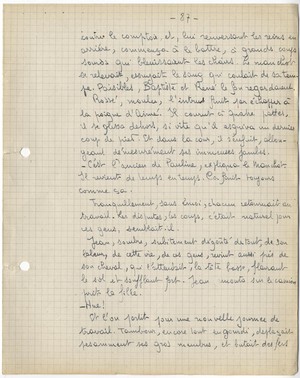 - 87 -
contre le comptoir et, lui renversant les reins en
arrière, commença à le battre, à grands coups
sourds qui bleuissaient les chairs. Le manchot
se relevait, essuyait le sang qui coulait de sa tem-
pe. Paisibles, Baptiste et René le regardaient.
Rossé, moulu, l'intrus finit par échapper à
la poigne d'Aimé. Il courut à quatre pattes,
il se glissa dehors, si vite qu'il esquiva un dernier
coup de pied. Et dans la nuit, il s'enfuit, allon-
geant ses immenses jambes.
- C'est l'ancien de Pauline, expliqua le manchot.
Il revient de temps en temps. Ça finit toujours
comme ça.
Tranquillement, sans ennui, chacun retournait au
travail. Les disputes, les coups, c'était naturel pour
ces gens, semblait-il.
Jean, sombre, subitement dégoûté de tout, de son
de cette vie, de ces gens, revint aussi près de
son cheval, qui l'attendait, la tête basse, flairant
le sol et soufflant fort. Jean monta sur le camion
prit la bille.
- Hue!
Et l'on partit pour une nouvelle journée de
travail. Tambour, encore tout engourdi, déplaçait
pesamment ses gros membres, et butait des fers